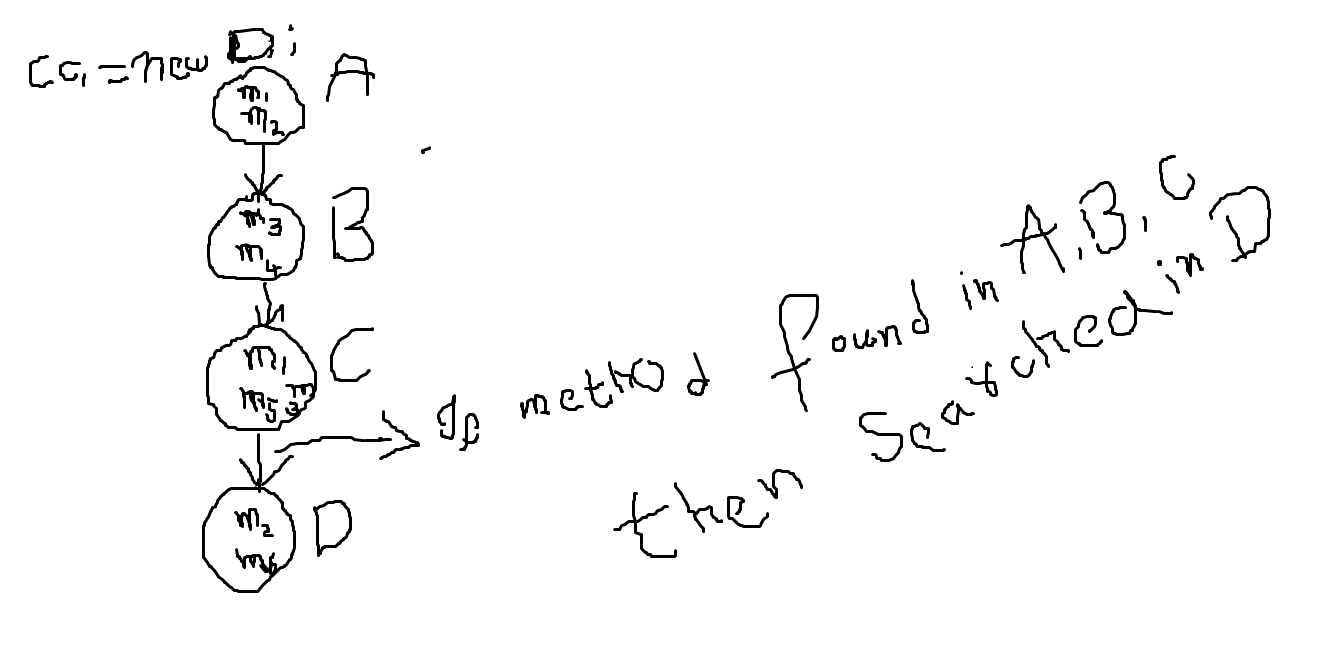 C c1 = new D;
A
m1
m2
B
m3
m4
C
m1
m5 m3
D
m2
m6
If method found in A, B, C
then searched in D